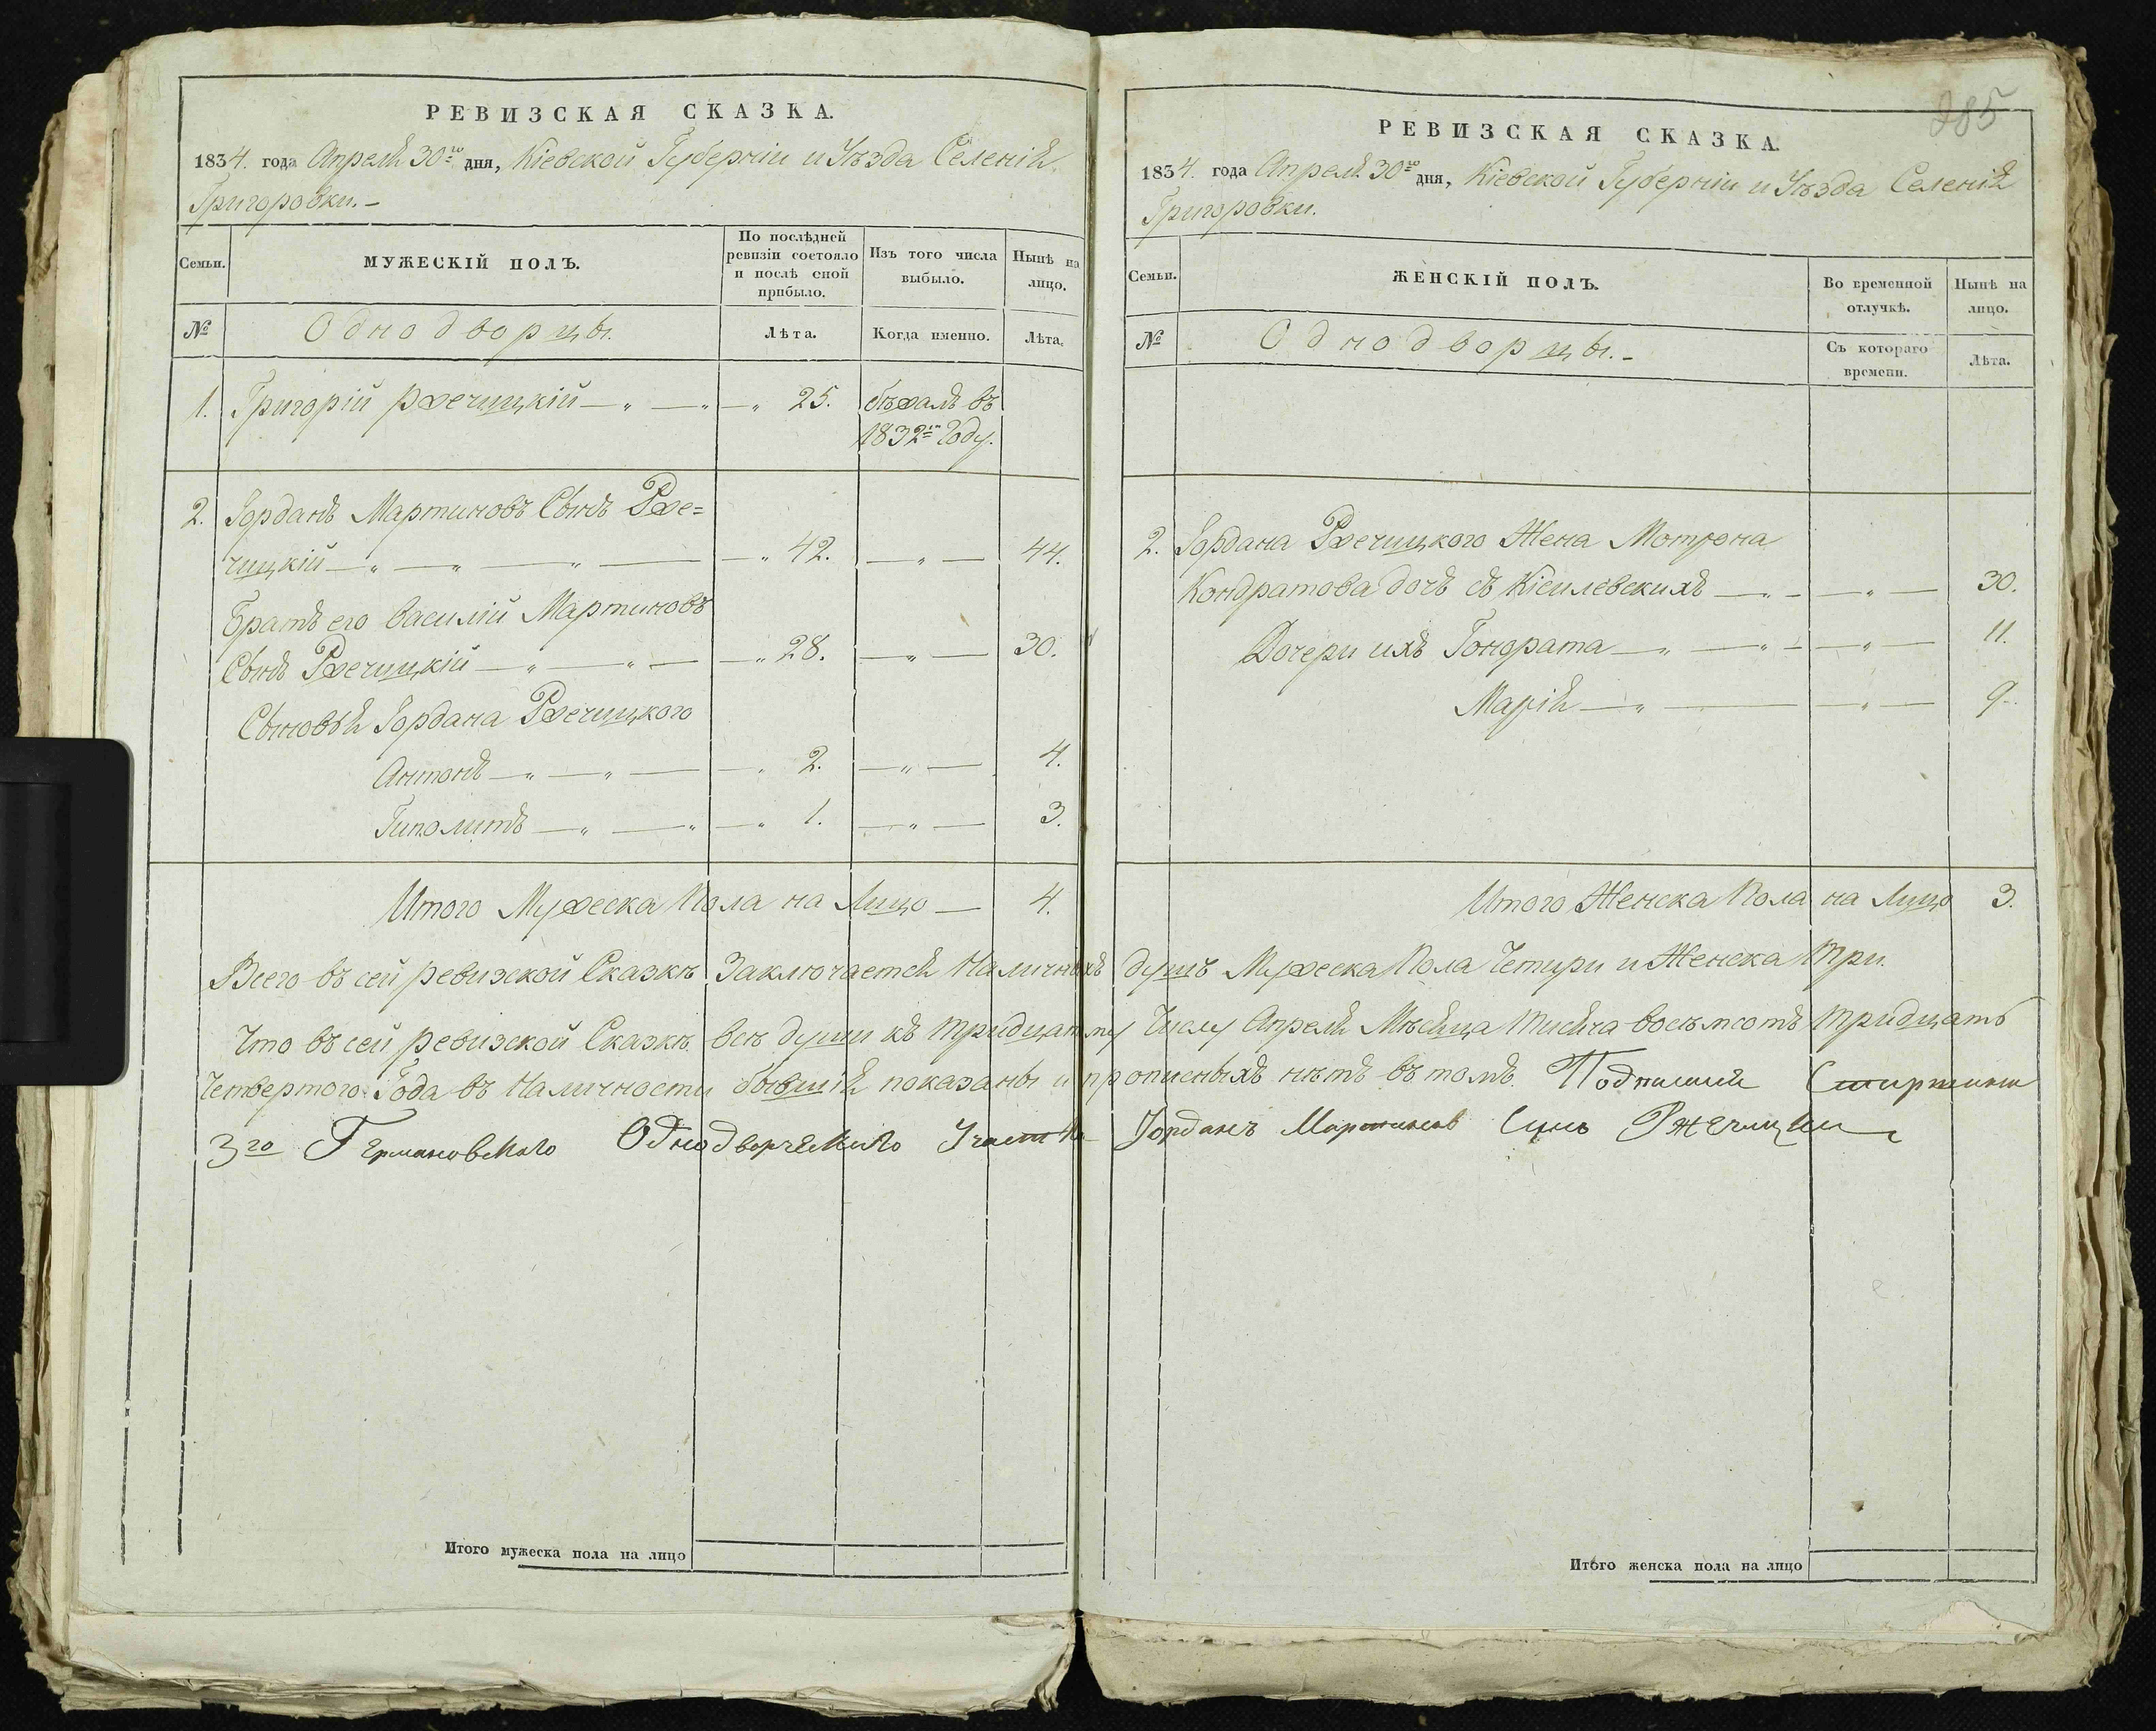 РЕВИЗСКАЯ СКАЗКА.
1834. года Апреля 30го дня, Кіевской Губерніи и Уѣзда Селенія
Григоровки.–
Семьи.
МУЖЕСКІЙ ПОЛЪ.
По послѣдней ревизіи состояло и послѣ оной прибыло.
Изъ того числа выбыло.
Нынѣ на лицо.
№
Однодворцы.
Лѣта.
Когда именно.
Лѣта.
1. Григорій Ржечицкій — 25. бѣжалъ въ
1832м Году.
2. Іорданъ Мартиновъ Сынъ Рже=
чицкій — 42. — 44.
Братъ его Василій Мартиновъ
Сынъ Ржечицкій — 28. — 30.
Сыновья Іордана Ржечицкого
Антонъ — 2. — 4.
Гиполитъ — 1. — 3.
Итого Мужеска Пола на Лицо — 4.
285
РЕВИЗСКАЯ СКАЗКА.
1834. года Апреля 30го дня, Кіевской Губерніи и Уѣзда Селенія
Григоровки.
Семьи.
ЖЕНСКІЙ ПОЛЪ.
Во временной отлучкѣ.
Нынѣ на лицо.
№
Однодворцы.–
Съ котораго времени.
Лѣта.
2. Іордана Ржечицкого Жена Мотрона
Кондратова дочъ съ Кісилевскихъ — 30.
Дочери ихъ Гондрата — 11.
Марія — 9.
Итого Женска Пола на Лицо 3.
Всего въ сей ревизской Сказкѣ Заключается Наличныхъ душъ Мужеска Пола Четири и Женска Три.
Что въ сей ревизской Сказкѣ всѣ души къ тридцатому Числу Апреля Мѣсяца Тисяча восѣмсотъ тридцать
Четвертого Года въ Наличности бывшія показаны и прописныхъ нѣтъ въ томъ.
3го Германовского Однодворческого Іорданъ Мартинов Синъ Ржечицки
Итого мужеска пола на лицо
Итого женска пола на лицо